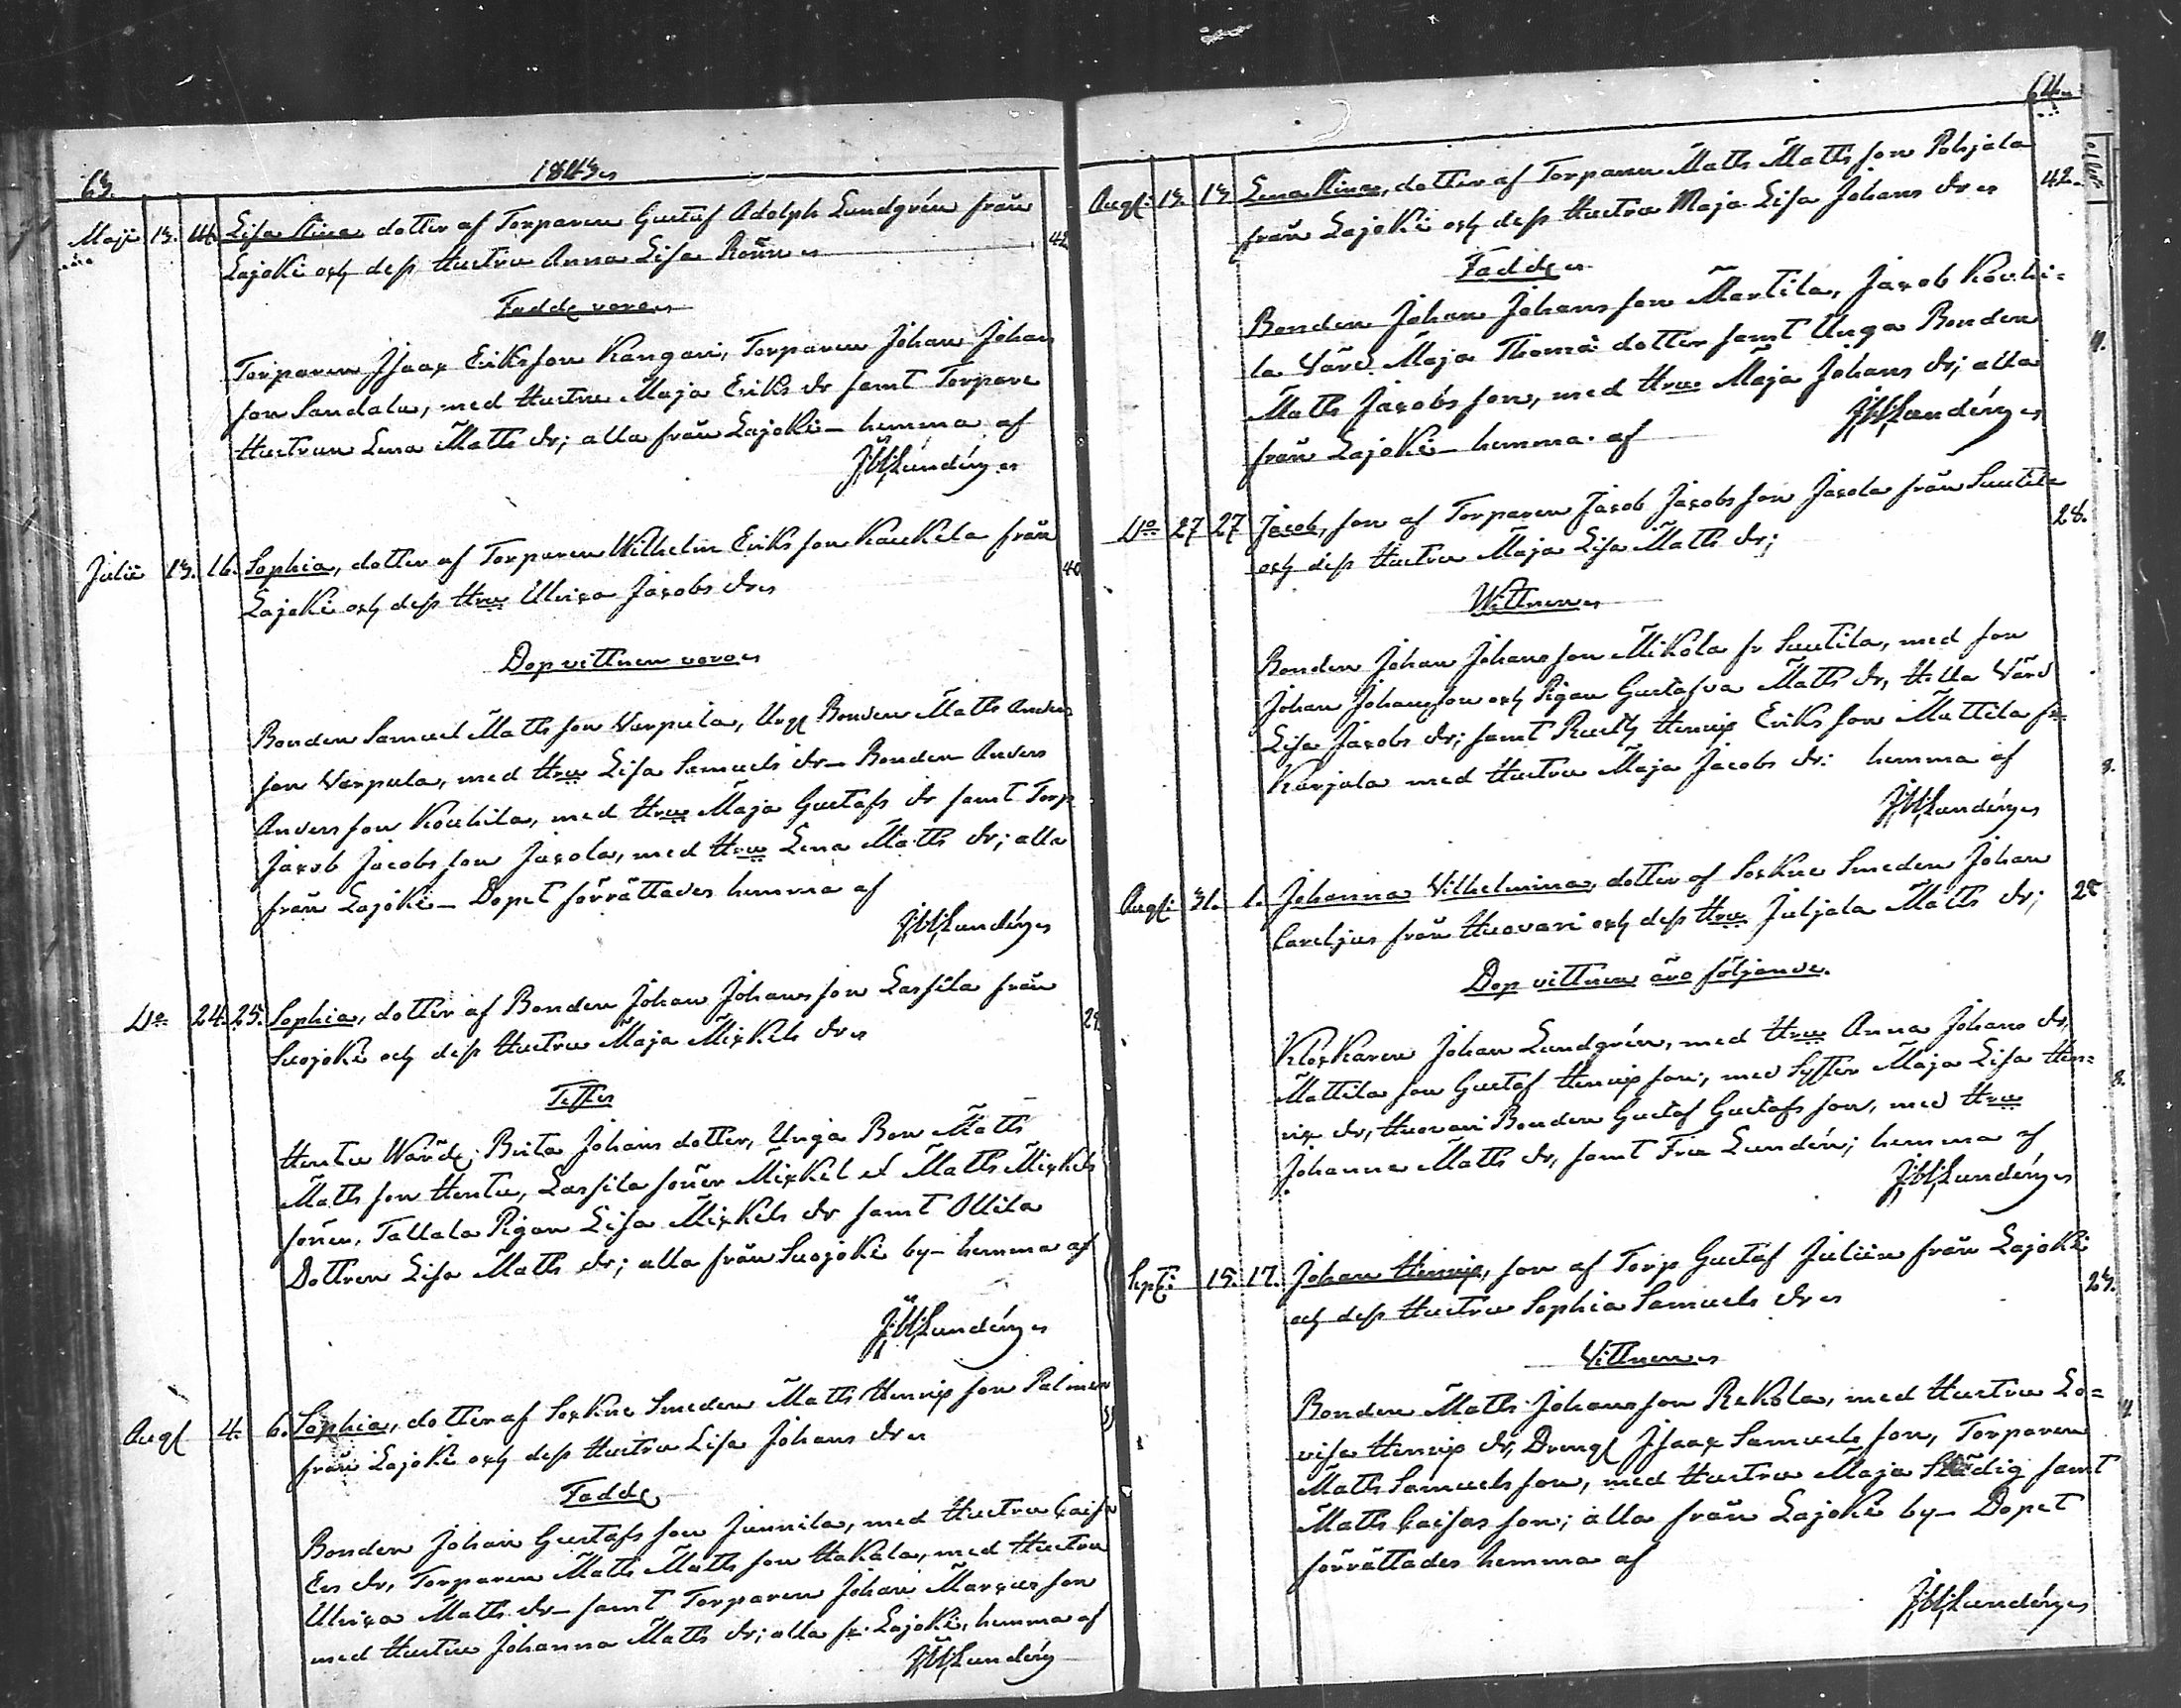 63.
1843
Maji 13. 14. Lisa Stina, dotter af Torparen Gustaf Adolph Lundgrén från 42
Lajoki och dess Hustru Anna Lisa
Fadd: voro
Torparen Isaac Eriksson Kangari, Torparen Johan Johans
son Sandala, med Hustru Maja Eriks dr samt Torpare
Hustrun Lena Matts dr; alla från Lajoki – hemma af
Lundén
Julii 13. 16. Sophia, dotter af Torparen Wilhelm Eriksson Kaukila från 40
Lajoki och dess Hru Ulrica Jacobs dr
Dopvittnen voro
Bonden Samuel Mattsson Varpula, Ung Bonden Matts Anders
son Varpula, med Hru Lisa Samuels dr – Bonden Anders
Andersson Kouhila, med Hru Maja Gustafs dr samt Torp
Jacob Jacobsson Jacola, med Hru Lena Matts dr; alla
från Lajoki – Dopet förrättades hemma af
Lundén
Do 24. 25. Sophia, dotter af Bonden Johan Johansson Lassila från 29
Suojoki och dess Hustru Maja Mickels dr
Testes
Hentu Värd: Brita Johans dotter, Unga Bon Matts
Mattsson Hentu, Lassila söner Mickel et Matts Mickels
söner, Tallala Pigan Lisa Mickels dr samt Ollila
Dottren Lisa Matts dr; alla från Suojoki by – hemma af
Lundén
Aug 4. 6. Sophia, dotter af Sockne Smeden Matts Henricsson Palmen
från Lajoki och dess Hustru Lisa Johans dr
Fadd:
Bonden Johan Gustafsson Junnila, med Hustru Caisa
Es dr, Torparen Matts Mattsson Hakala, med Hustru
Ulrica Matts dr – samt Torparen Johan Marcusson
med Hustru Johanna Matts dr; alla fr: Lajoki, hemma af
Lundén
64
Aug: 13. 13 Lena Stina, dotter af Torparen Matts Mattsson Pohjala 42.
från Lajoki och dess Hustru Maja Lisa Johans dr
Fadd:
Bonden Johan Johansson Marttila, Jacob Kouhi=
la Värd: Maja Thomæ dotter samt Unga Bonden
Matts Jacobsson, med Hru Maja Johans dr; alla
från Lajoki – hemma af
Lundén
Do 27 27 Jacob, son af Torparen Jacob Jacobsson Jacola från Suutila 28.
och dess Hustru Maja Lisa Matts dr;
Wittnen
Bonden Johan Johansson Mikola fr Suutila, med son
Johan Johansson och Pigan Gustafva Matts dr, Värd
Lisa Jacobs dr; samt Rusth Henric Eriksson Mattila fr
Karjala med Hustru Maja Jacobs dr: hemma af
Lundén
Aug: 31. 1. Johanna Vilhelmina, dotter af Sockne Smeden Johan
Careljus från Huovari och dess Hru Juljala Matts dr;
Dop vittnen äro följande.
Klockaren Johan Lundgrén, med Hru Anna Johans dr,
Mattila son Gustaf Henricsson, med Syster Maja Lisa Hen=
ric dr, Huovari Bonden Gustaf Gustafsson, med Hru
Johanna Matts dr, samt Fru Lundén; hemma af
Lundén
Sept: 15. 17. Johan Henric, son af Torp Gustaf Julin från Lajoki 23.
och dess Hustru Sophia Samuels dr
Vittnen
Bonden Matts Johansson Rekola, med Hustru Lo=
visa Henrics dr, Dreng Isaac Samuelsson, Torparen
Matts Samuelsson, med Hustru Maja Städig samt
Matts Caisasson; alla från Lajoki by – Dopet
förrättades hemma af
Lundén